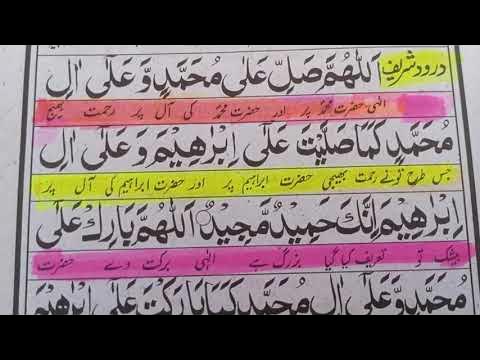 درود شریف اَللّٰهُمَّ صَلِّ عَلٰى مُحَمَّدٍ وَّ عَلٰٓى اٰلِ
الٰہی حضرت محمدؐ پر اور حضرت محمدؐ کی آل پر رحمت بھیج
مُحَمَّدٍ كَمَا صَلَّيْتَ عَلٰٓى اِبْرٰهِيْمَ وَ عَلٰٓى اٰلِ
جس طرح تو نے رحمت بھیجی حضرت ابراہیم پر اور حضرت ابراہیم کی آل پر
اِبْرٰهِيْمَ اِنَّكَ حَمِيْدٌ مَّجِيْدٌ اَللّٰهُمَّ بَارِكْ عَلٰى
بیشک تو تعریف کیا گیا بزرگ ہے الٰہی برکت دے حضرت
مُحَمَّدٍ وَّ عَلٰٓى اٰلِ مُحَمَّدٍ كَمَا بَارَكْتَ عَلٰٓى اِبْرٰهِيْمَ